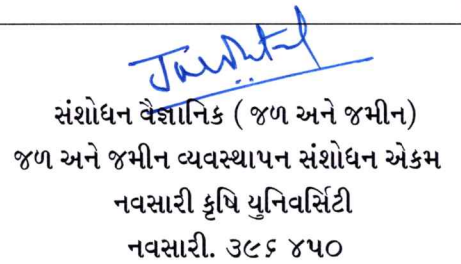 સંશોધન વૈજ્ઞાનિક ( જળ અને જમીન)
જળ અને જમીન વ્યવસ્થાપન સંશોધન એકમ
નવસારી કૃષિ યુનિવર્સિટી
નવસારી. ૩૯૬ ૪૫૦